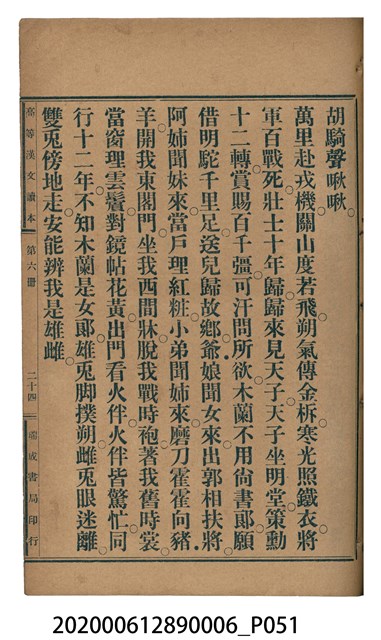 胡騎聲啾啾。
萬里赴戎機。關山度若飛。朔氣傳金柝。寒光照鐵衣。將
軍百戰死。壯士十年歸。歸來見天子。天子坐明堂。策勳
十二轉。賞賜百千彊。可汗問所欲。木蘭不用尙書郞。願
借明駝千里足。送兒歸故鄕。爺娘聞女來。出郭相扶將。
阿姊聞妹來。當戶理紅粧。小弟聞姊來。磨刀霍霍向豬
羊。開我東閣門。坐我西間牀。脫我戰時袍。著我舊時裳。
當窗理雲鬢。對鏡帖花黃。出門看火伴。火伴皆驚忙。同
行十二年。不知木蘭是女郞。雄兎脚撲朔。雌兎眼迷離。
雙兎傍地走。安能辨我是雄雌。
高等漢文讀本 第六冊 二十四 瑞成書局印行
202000612890006_P051